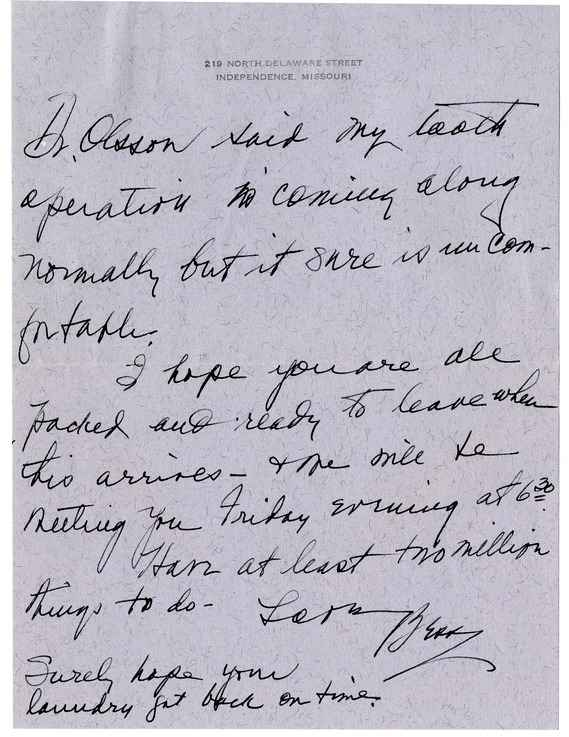 219 NORTH DELAWARE STREET
INDEPENDENCE, MISSOURI
Dr. Olsson said my tooth
operation is coming along
normally but it sure is uncom-
fortable.
I hope you are all
packed and ready to leave when
this arrives - & we will be
meeting you Friday evening at 6 30
Have at least two million
things to do - Love Bess
Surely hope your
laundry got back on time.